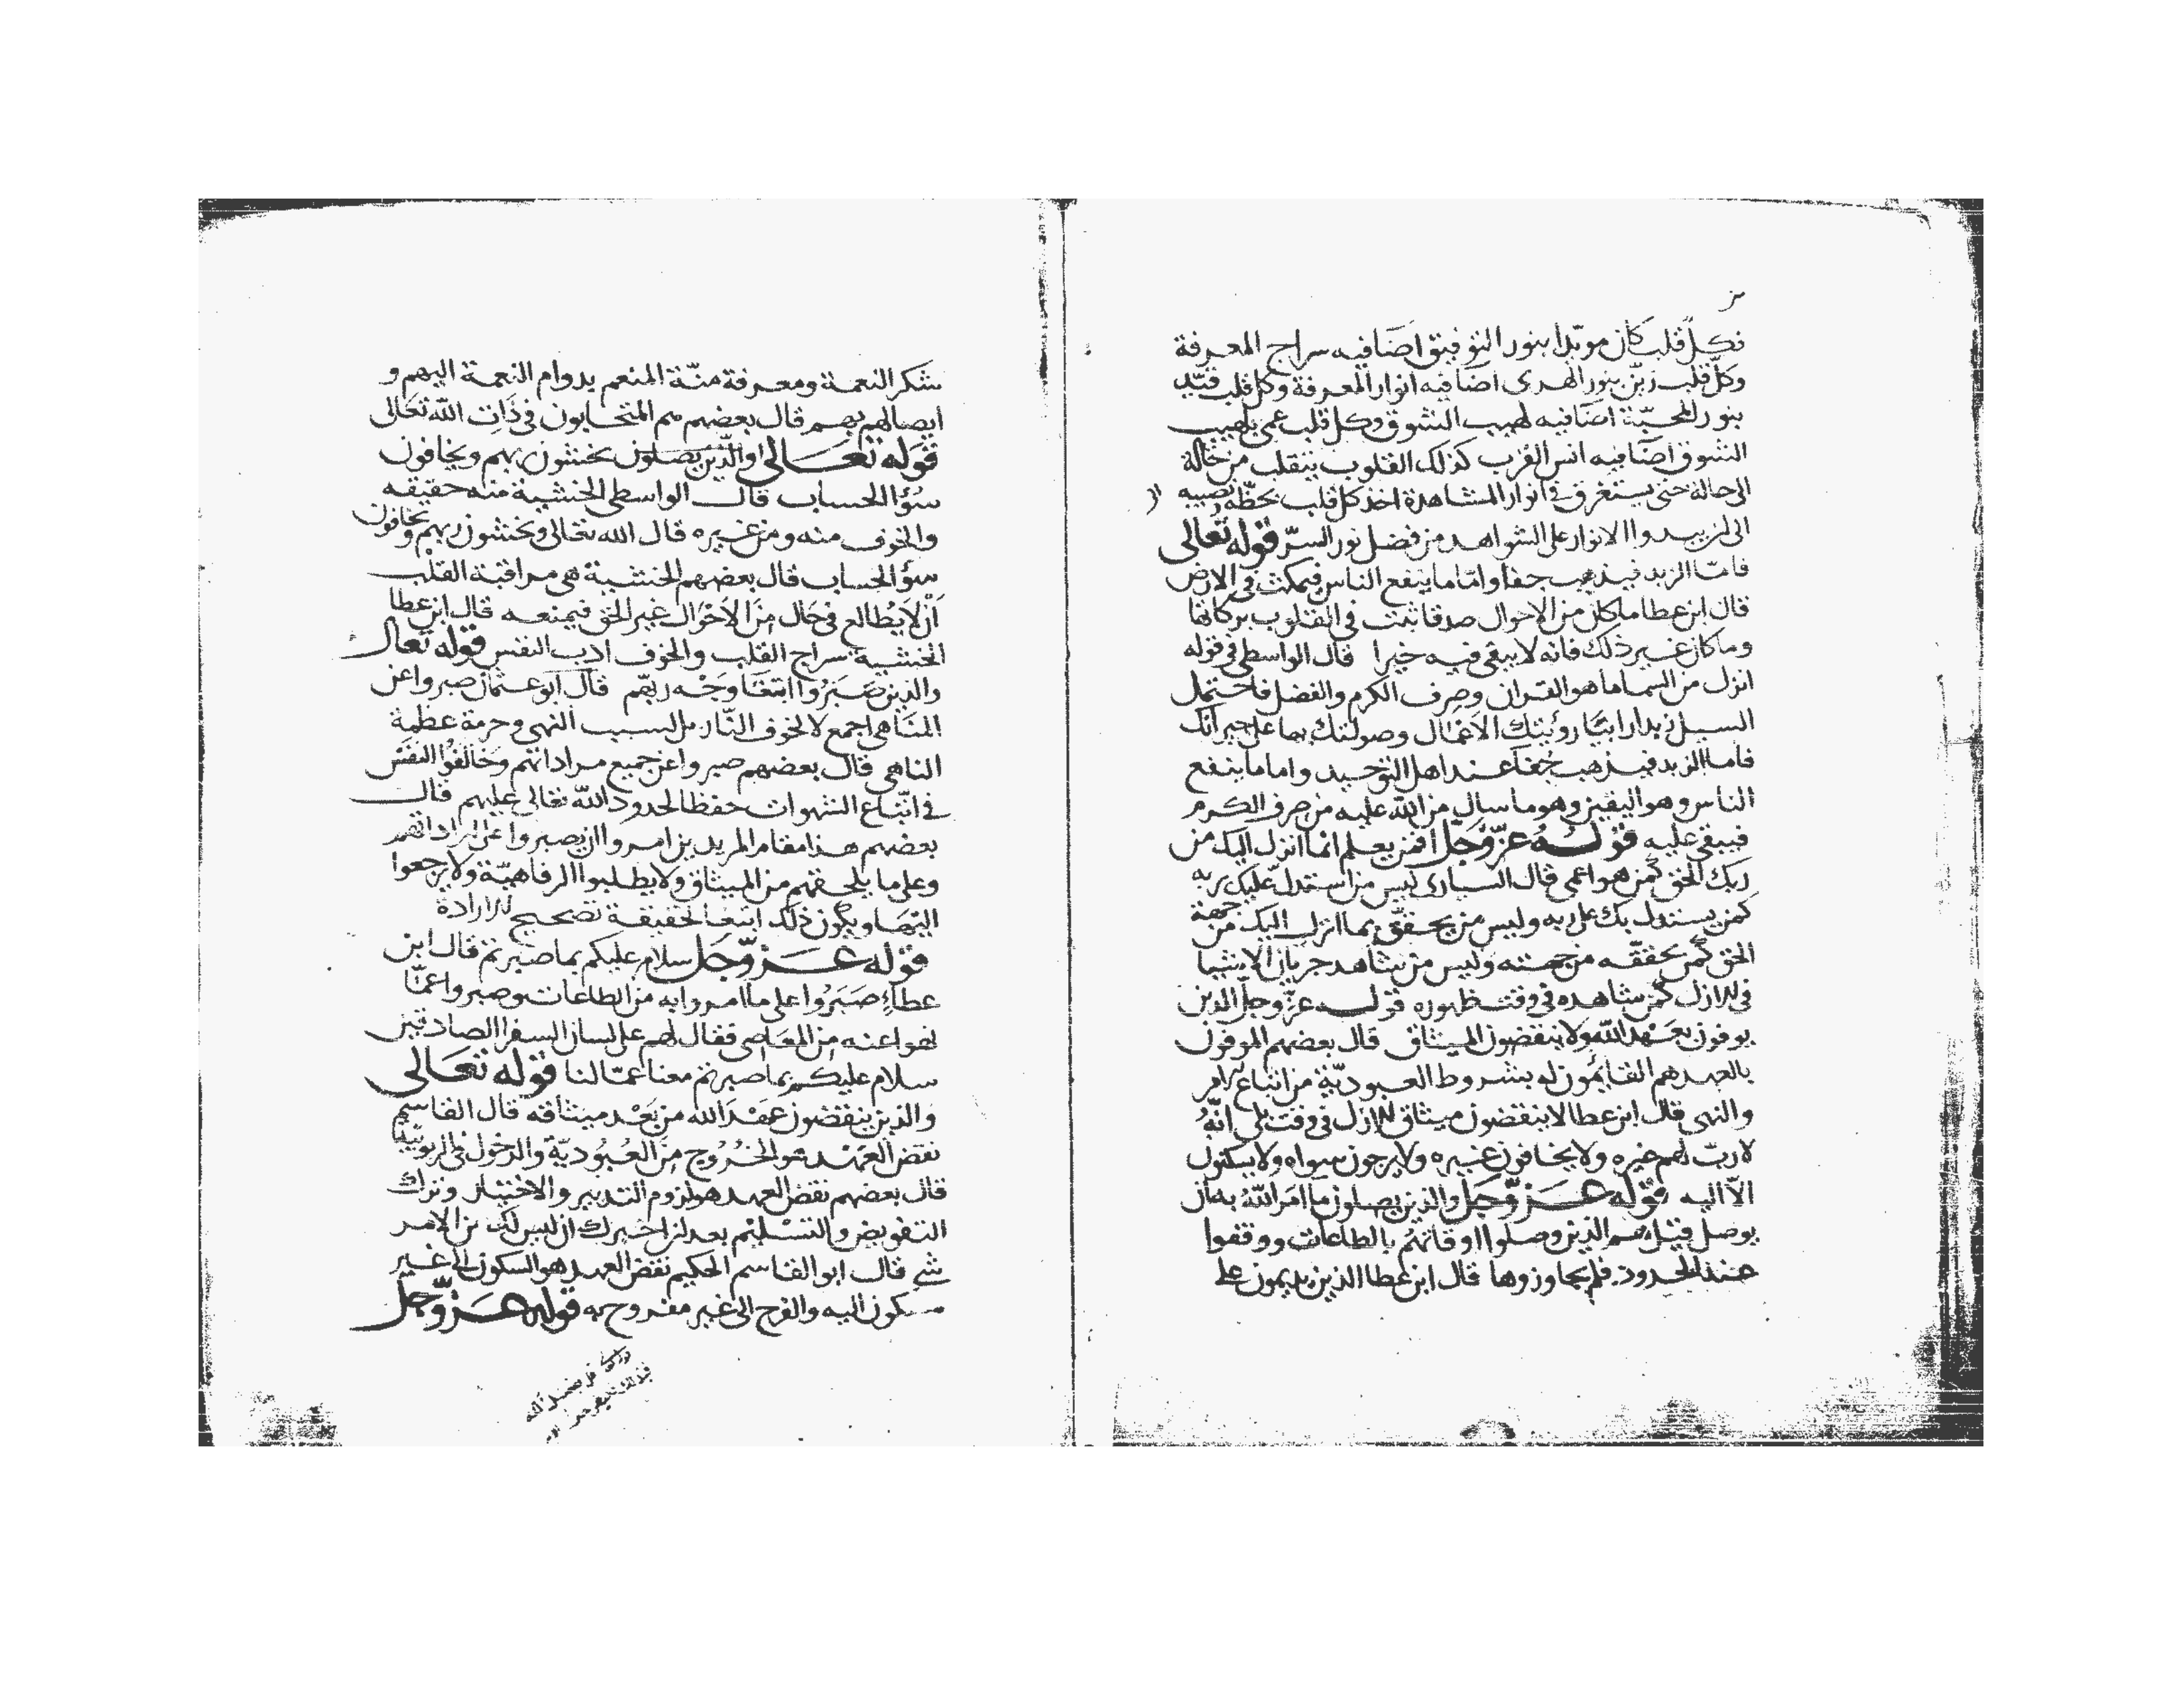 فكل قلب كان مويدا بنور التوفيق اضا فيه سراج المعرفة
وكل قلب زين بنور الهدى اضا فيه انوار المعرفة وكل قلب قيد
بنور المحبة اضا فيه لهيب الشوق وكل قلب عمر بلهيب
الشوق اضا فيه انس القرب كذلك القلوب ينقلب من حالة
الى حالة حتى يستغرق فى انوار المشاهدة اخذ كل قلب بحظه ونصيبه
الى ان يبدوا الانوار على الشواهد من فضل نور السر قوله تعالى
فاما الزبد فيذهب جفا واما ما ينفع الناس فيمكث فى الارض
قال ابن عطا ما كان من الاحوال صدقا ثبت فى القلوب بركاتها
وما كان غير ذلك فانه لا يبقى فيه خيرا قال الواسطى فى قوله
انزل من السما ما هو القران وصرف الكرم والفضل فاحتمل
السيل زبدا رابيا رؤيتك الاعمال وصولتك بها على جيرانك
فاما الزبد فيذهب جفا عند اهل التوحيد واما ما ينفع
الناس وهو اليقين وهو ما سال من الله عليه من صرف الكرم
فيبقى عليه قوله عز وجل افمن يعلم انما انزل اليك من
ربك الحق كمن هو اعمى قال السيارى ليس من استدل عليك بربه
كمن يستدل بك على ربه وليس من يحقق بما انزل اليك من جهة
الحق كمن يحققه من جهته وليس من يشاهد جريان الاشيا
فى الازل كمن شاهده فى وقت ظهوره قوله عز وجل الذين
يوفون بعهد الله ولا ينقضون الميثاق قال بعضهم الموفون
بالعهد هم القايمون له بشروط العبودية من اتباع الامر
والنهى قال ابن عطا لا ينقضون ميثاق الازل فى وقت بلى انه
لا رب لهم غيره ولا يخافون غيره ولا يرجون سواه ولا يسكنون
الا اليه قوله عز وجل والذين يصلون ما امر الله به ان
يوصل قيل هم الذين وصلوا اوقاتهم بالطاعات ووقفوا
عند الحدود فلم يجاوزوها قال ابن عطا الذين يديمون على
شكر النعمة ومعرفة منة المنعم بدوام النعمة اليهم و
ايصالهم بهم قال بعضهم هم المتحابون فى ذات الله تعالى
قوله تعالى والذين يصلون يخشون ربهم ويخافون
سؤ الحساب قال الواسطى الخشية منه حقيقه
والخوف منه ومن غيره قال الله تعالى ويخشون ربهم ويخافون
سؤ الحساب قال بعضهم الخشية هى مراقبة القلب
ان لا يطالع فى حال من الاحوال غير الحق فيمنعه قال ابن عطا
الخشية سراج القلب والخوف ادب النفس قوله تعالى
والذين صبروا ابتغا وجه ربهم قال ابو عثمان صبروا عن
المناهى اجمع لا لخوف النار بل لسبب النهى وحرمة عظمة
الناهى قال بعضهم صبروا عن جميع مراداتهم وخالفوا النفس
فى اتباع الشهوات حفظا لحدود الله تعالى عليهم قال
بعضهم هذا مقام المريدين امروا ان يصبروا على اراداتهم
وعلى ما يلحقهم من الميثاق ولا يطلبوا الرفاهية ولا يرجعوا
اليها ويكون ذلك ابتغا لحقيقة تصحيح الارادة
قوله عز وجل سلام عليكم بما صبرتم قال ابن
عطاء صبروا على ما امروا به من الطاعات وصبروا عما
نهوا عنه من المعاصى فقال لهم على لسان السفرا الصادقين
سلام عليكم بما صبرتم معنا عما لنا قوله تعالى
والذين ينقضون عهد الله من بعد ميثاقه قال القاسم
نقض العهد هو الخروج من العبودية والدخول فى الربوبية
قال بعضهم نقض العهد هو لزوم التدبير والاختيار وترك
التفويض والتسليم بعد ان اخبرك ان ليس لك من الامر
شى قال ابو القاسم الحكيم نقض العهد هو السكون الى غير
مسكون اليه والفرح الى غير مفروح به قوله عز وجل